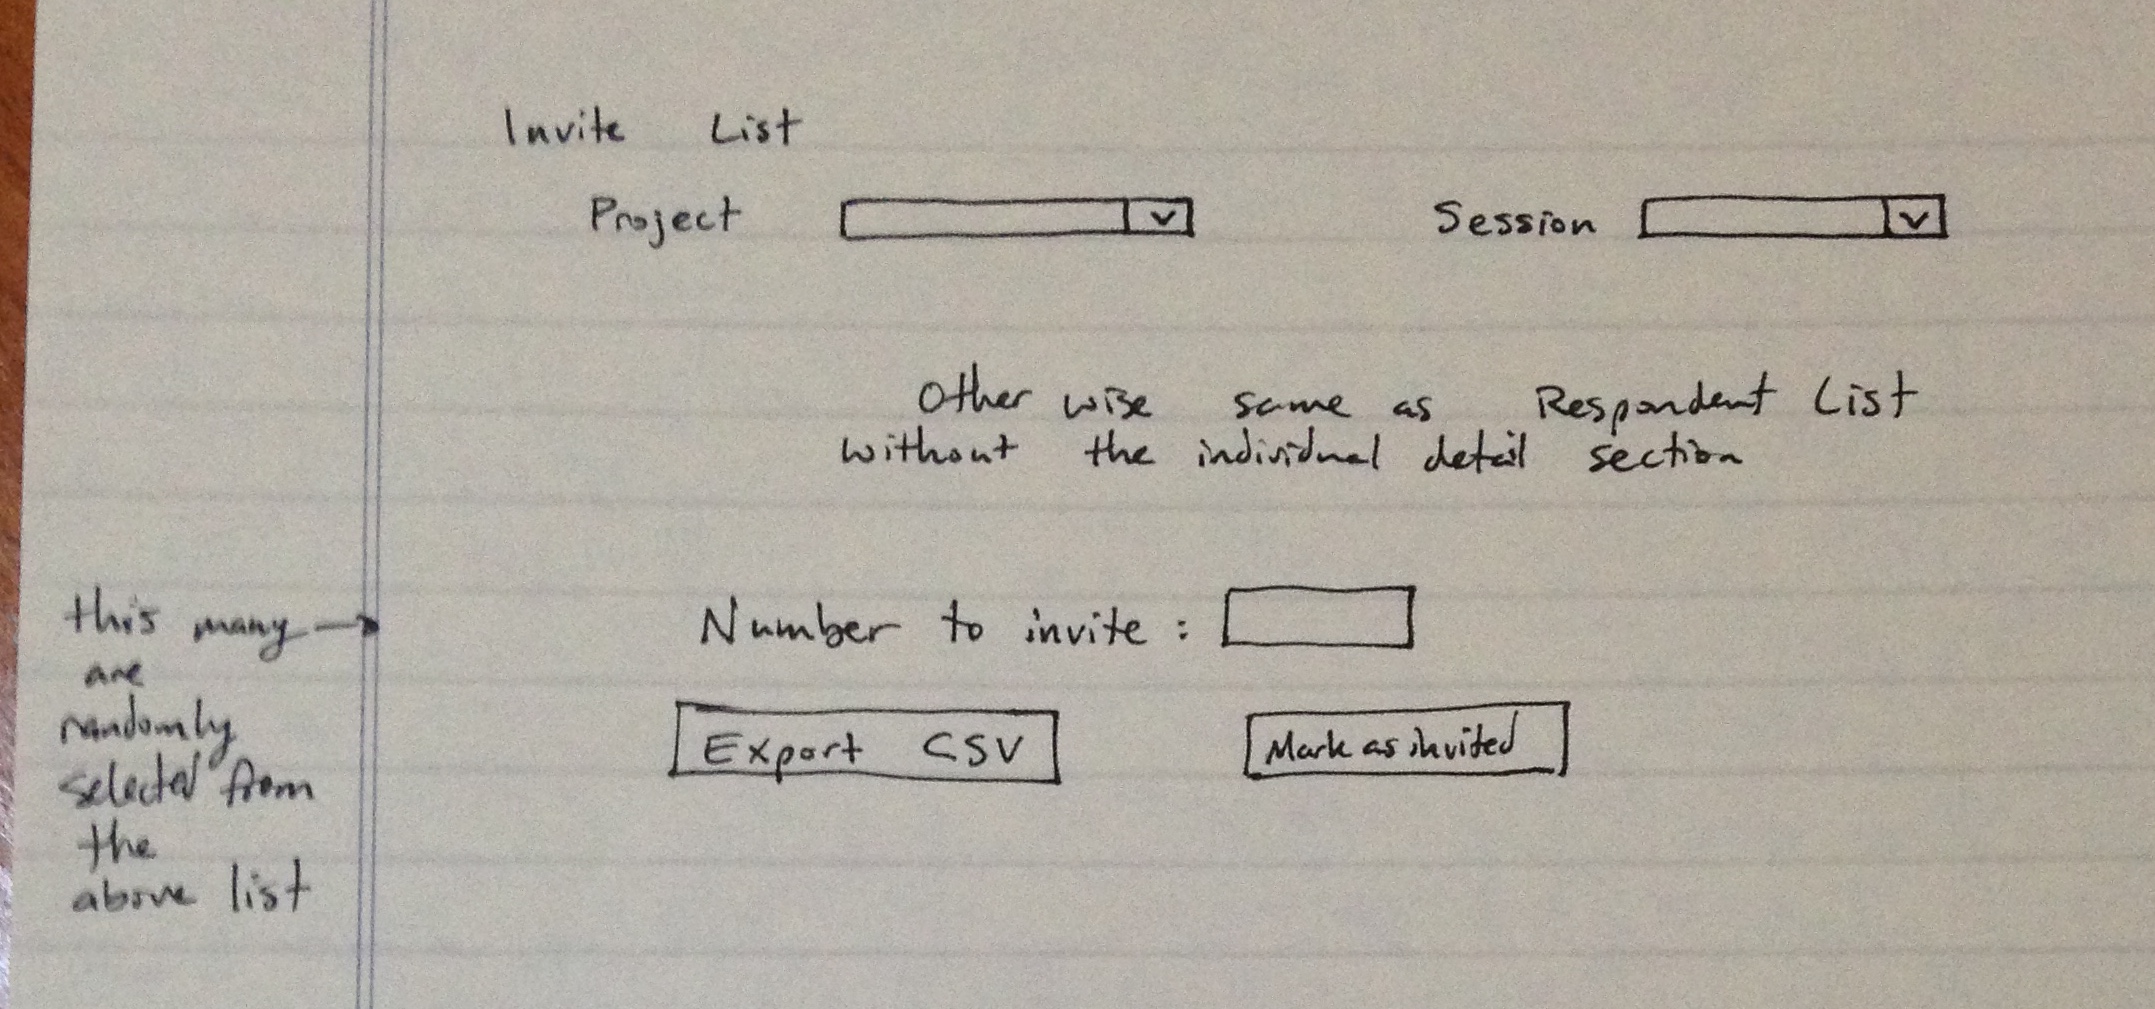 Invite List
Project
Session
Other wise same as Respondent List
without the individual detail section
this many
are
randomly
selected from
the
above list
Number to invite :
Export CSV
Mark as invited